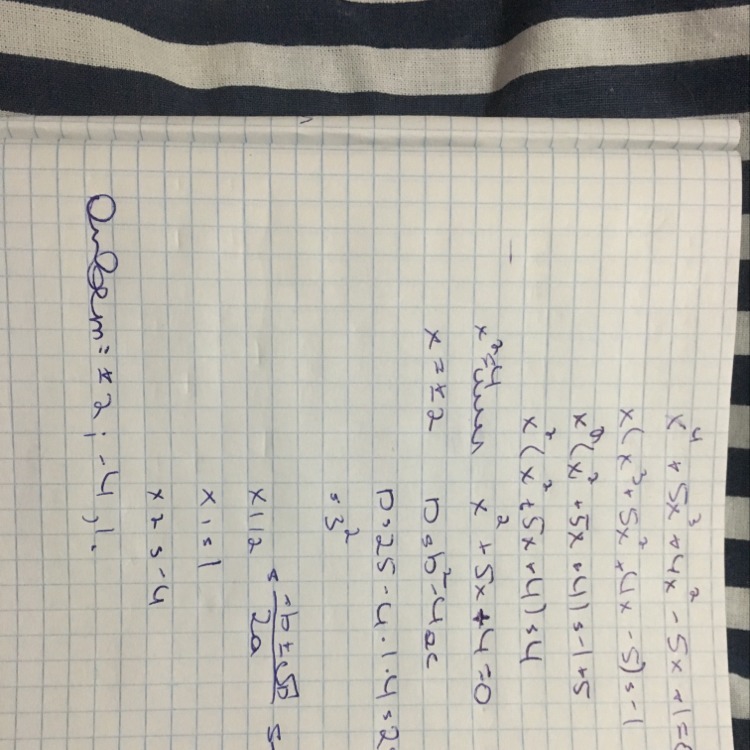 x⁴ + 5x³ + 4x² - 5x + 1 = 
x(x³ + 5x² + 4x - 5) = -1
x²(x² + 5x + 4) = -1 + 5
x²(x² + 5x + 4) = 4
x² = 4 или x² + 5x + 4 = 0
x = ±2 D = b² - 4ac
D = 25 - 4 · 1 · 4 = 2
= 3²
x1,2 = -b ± √D / 2a =
x1 = 1
x2 = -4
Ответ: ±2; -4; 1.